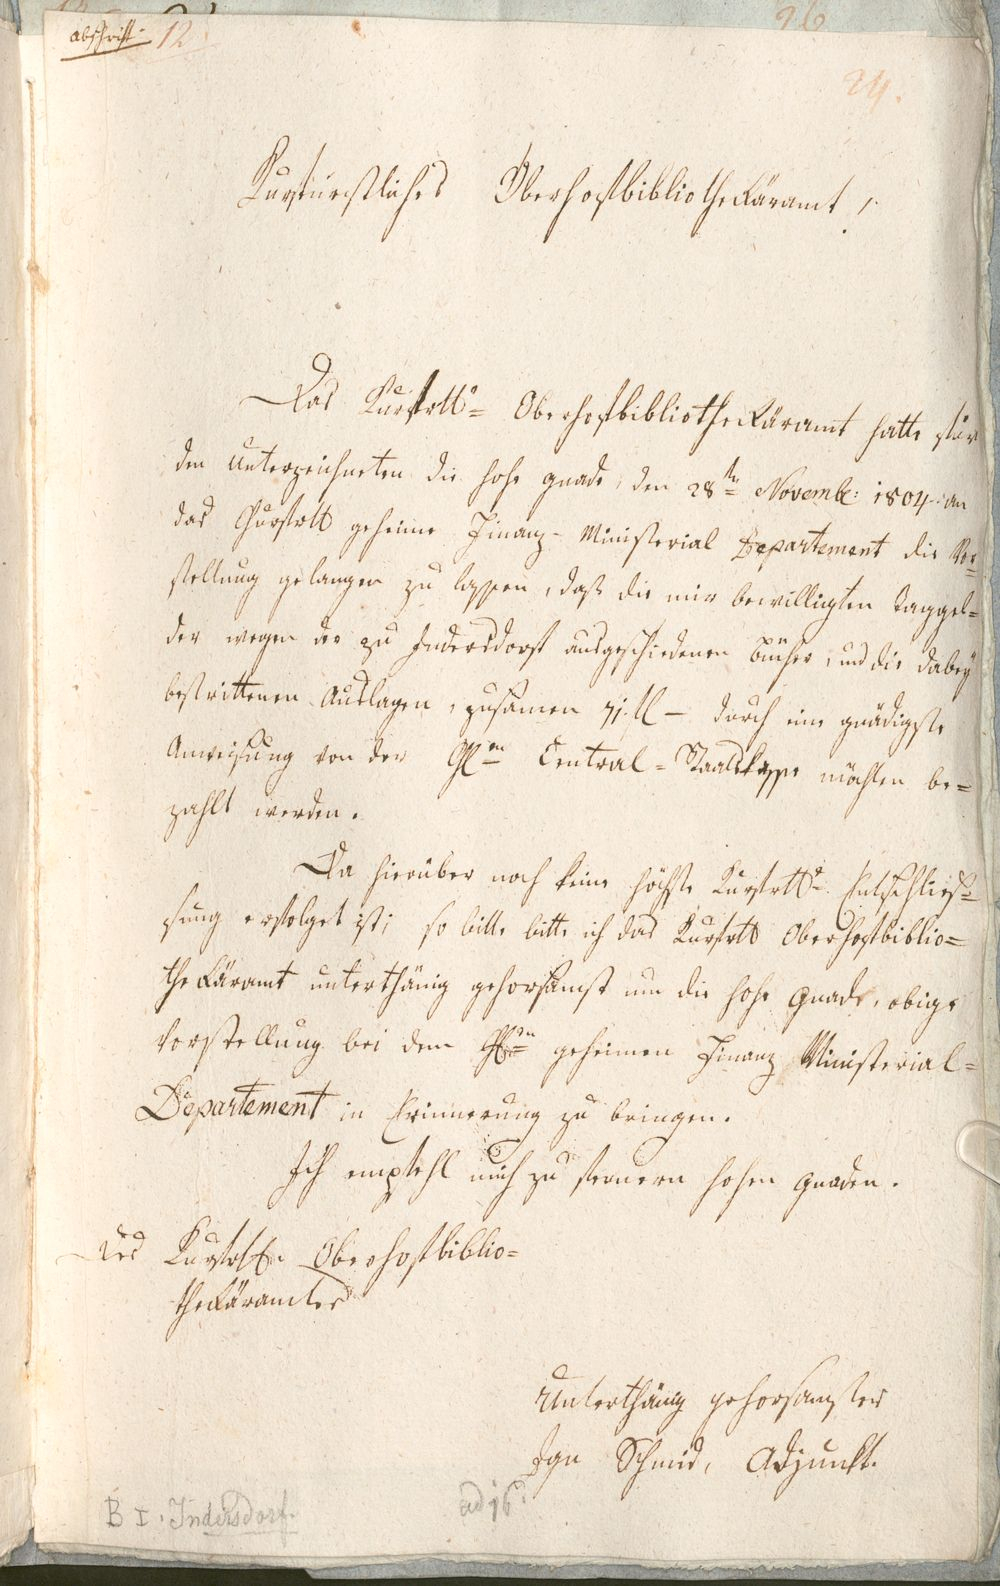 abschrift. 12.
26
24.
Kurfürstliches Oberhofbibliothekäramt!
Das Kurfrtl. Oberhofbibliothekäramt hatte für
den Unterzeichneten die hohe Gnade, den 28ten Novemb: 1804. an
das Churfrtl geheime Finanz-Ministerial Departement die Vor=
stellung gelangen zu lassen, daß die mir bewilligten Taggel=
der wegen der zu Indersdorf ausgeschiedenen Bücher, und die dabey
bestrittenen Auslagen, zusamen 71. fl — durch eine gnädigste
Anweisung von der Central=Staatskasse möchten be=
zahlt werden.
Da hierüber noch keine höchste Kurfrtl. Entschlies=
sung erfolget ist; so bitte bitte ich das Kurfrtl Oberhofbiblio=
thekäramt unterthänig gehorsamst um die hohe Gnade, obige
Vorstellung bei dem geheimen Finanz Ministerial=
Departement in Erinnerung zu bringen.
Ich empfehl mich zu fernern hohen Gnaden.
Des Kurfrtl. Oberhofbiblio=
thekäramtes
Unterthänig gehorsamster
Ign Schmid, Adjunkt.
B I. Indersdorf.
ad 16.